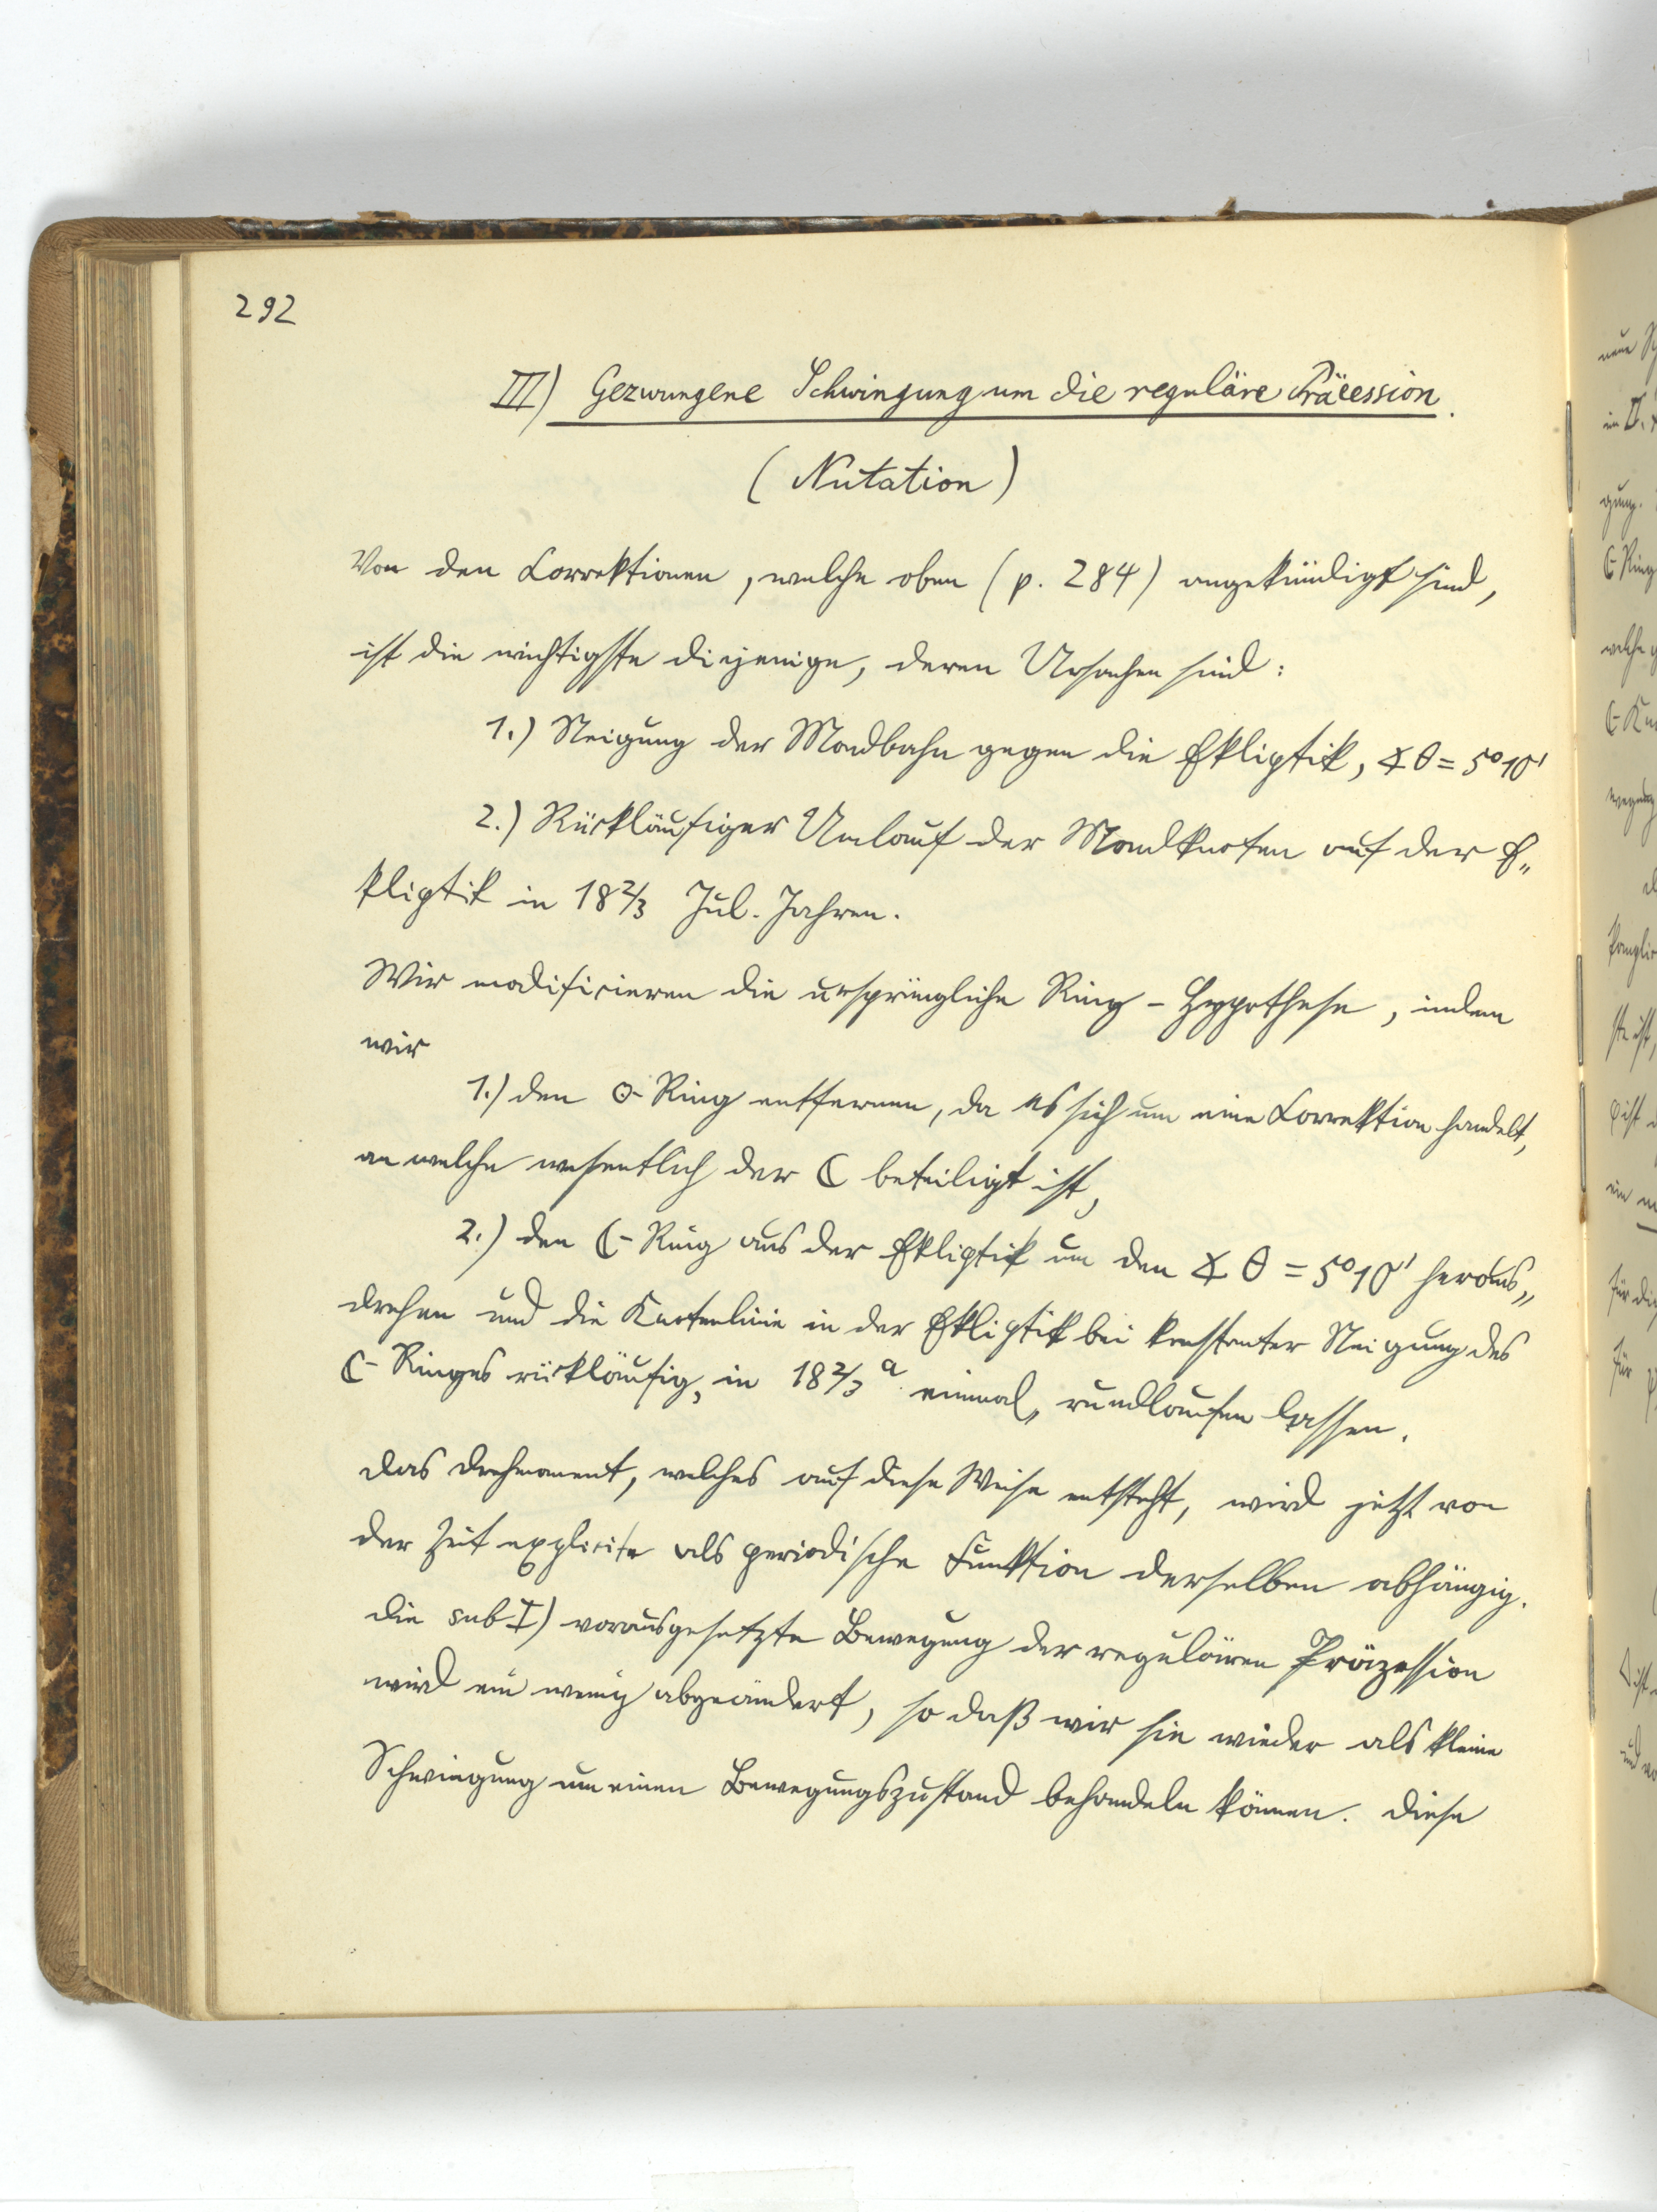 292
III) Gezwungene Schwingung um die reguläre Präcession.
(Nutation)
Von den Correktionen, welche oben (p. 284) angekündigt sind,
ist die wichtigste diejenige, deren Ursachen sind:
1.) Neigung der Mondbahn gegen die Ekliptik, ∢ θ = 5°10'
2.) Rückläufiger Umlauf der Mondknoten auf der E„
kliptik in 18 2/3 Jul. Jahren.
Wir modificieren die ursprüngliche Ring-Hypothese, indem
wir
1.) den ☉-Ring entfernen, da es sich um eine Correktion handelt,
an welche wesentlich der ☾ beteiligt ist,
2.) den ☾-Ring aus der Ekliptik um den ∢ θ = 5°10' heraus„
drehen und die Knotenlinie in der Ekliptik bei konstanter Neigung des
☾-Ringes rückläufig, in 18 2/3 a einmal, rundlaufen lassen.
Das Drehmoment, welches auf diese Weise entsteht, wird jetzt von
der Zeit explicite als periodische Funktion derselben abhängig.
Die sub I) vorausgesetzte Bewegung der regulären Präzession
wird ein wenig abgeändert, so daß wir sie wieder als kleine
Schwingung um einen Bewegungszustand behandeln können. Diese
neue
im II.
gung.
☾-Ring
welche
ein
für
für
ist
und